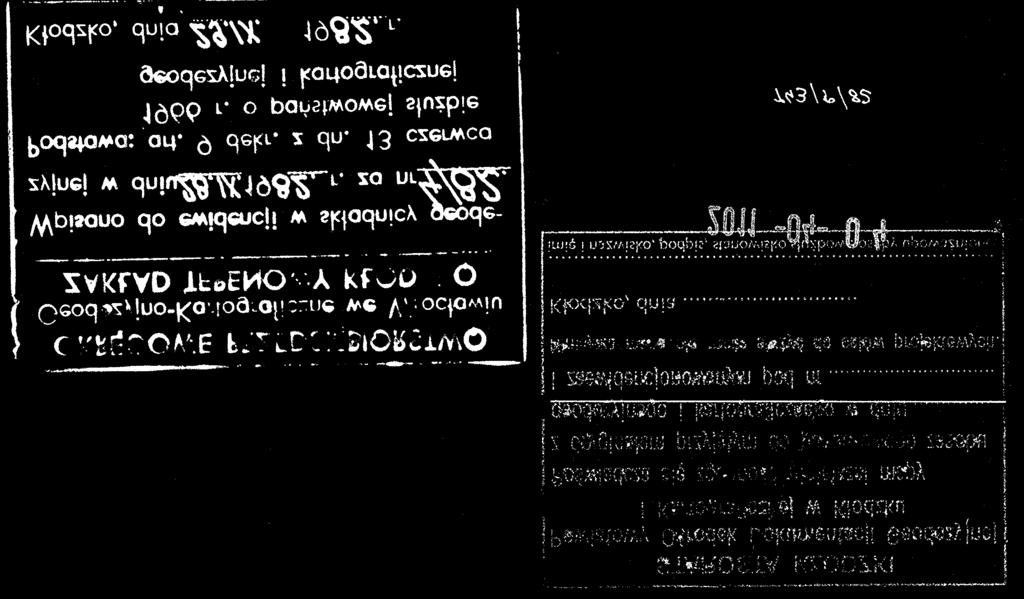 OKRĘGOWE PRZEDSIĘBIORSTWO
Geodezyjno-Kartograficzne we Wrocławiu
ZAKŁAD TERENOWY KŁODZKO
Wpisano do ewidencji w składnicy geode-
zyjnej w dniu 28.IX.1982 r. za nr 4/82.
Podstawa: art. 9 dekr. z dn. 13 czerwca
1966 r. o państwowej służbie
geodezyjnej i kartograficznej
Kłodzko, dnia 29.IX. 1982 r.
STAROSTA KŁODZKI
Powiatowy Ośrodek Dokumentacji Geodezyjnej
i Kartograficznej w Kłodzku
Poświadcza się zgodność niniejszej mapy
z oryginałem przyjętym do państwowego zasobu
geodezyjnego i kartograficznego w dniu
i zaewidencjonowanym pod nr ..........
mapa nie może służyć do celów projektowych.
Kłodzko, dnia ..........
imię i nazwisko, podpis, stanowisko służbowe osoby
2011 -04- 04
743/P/82